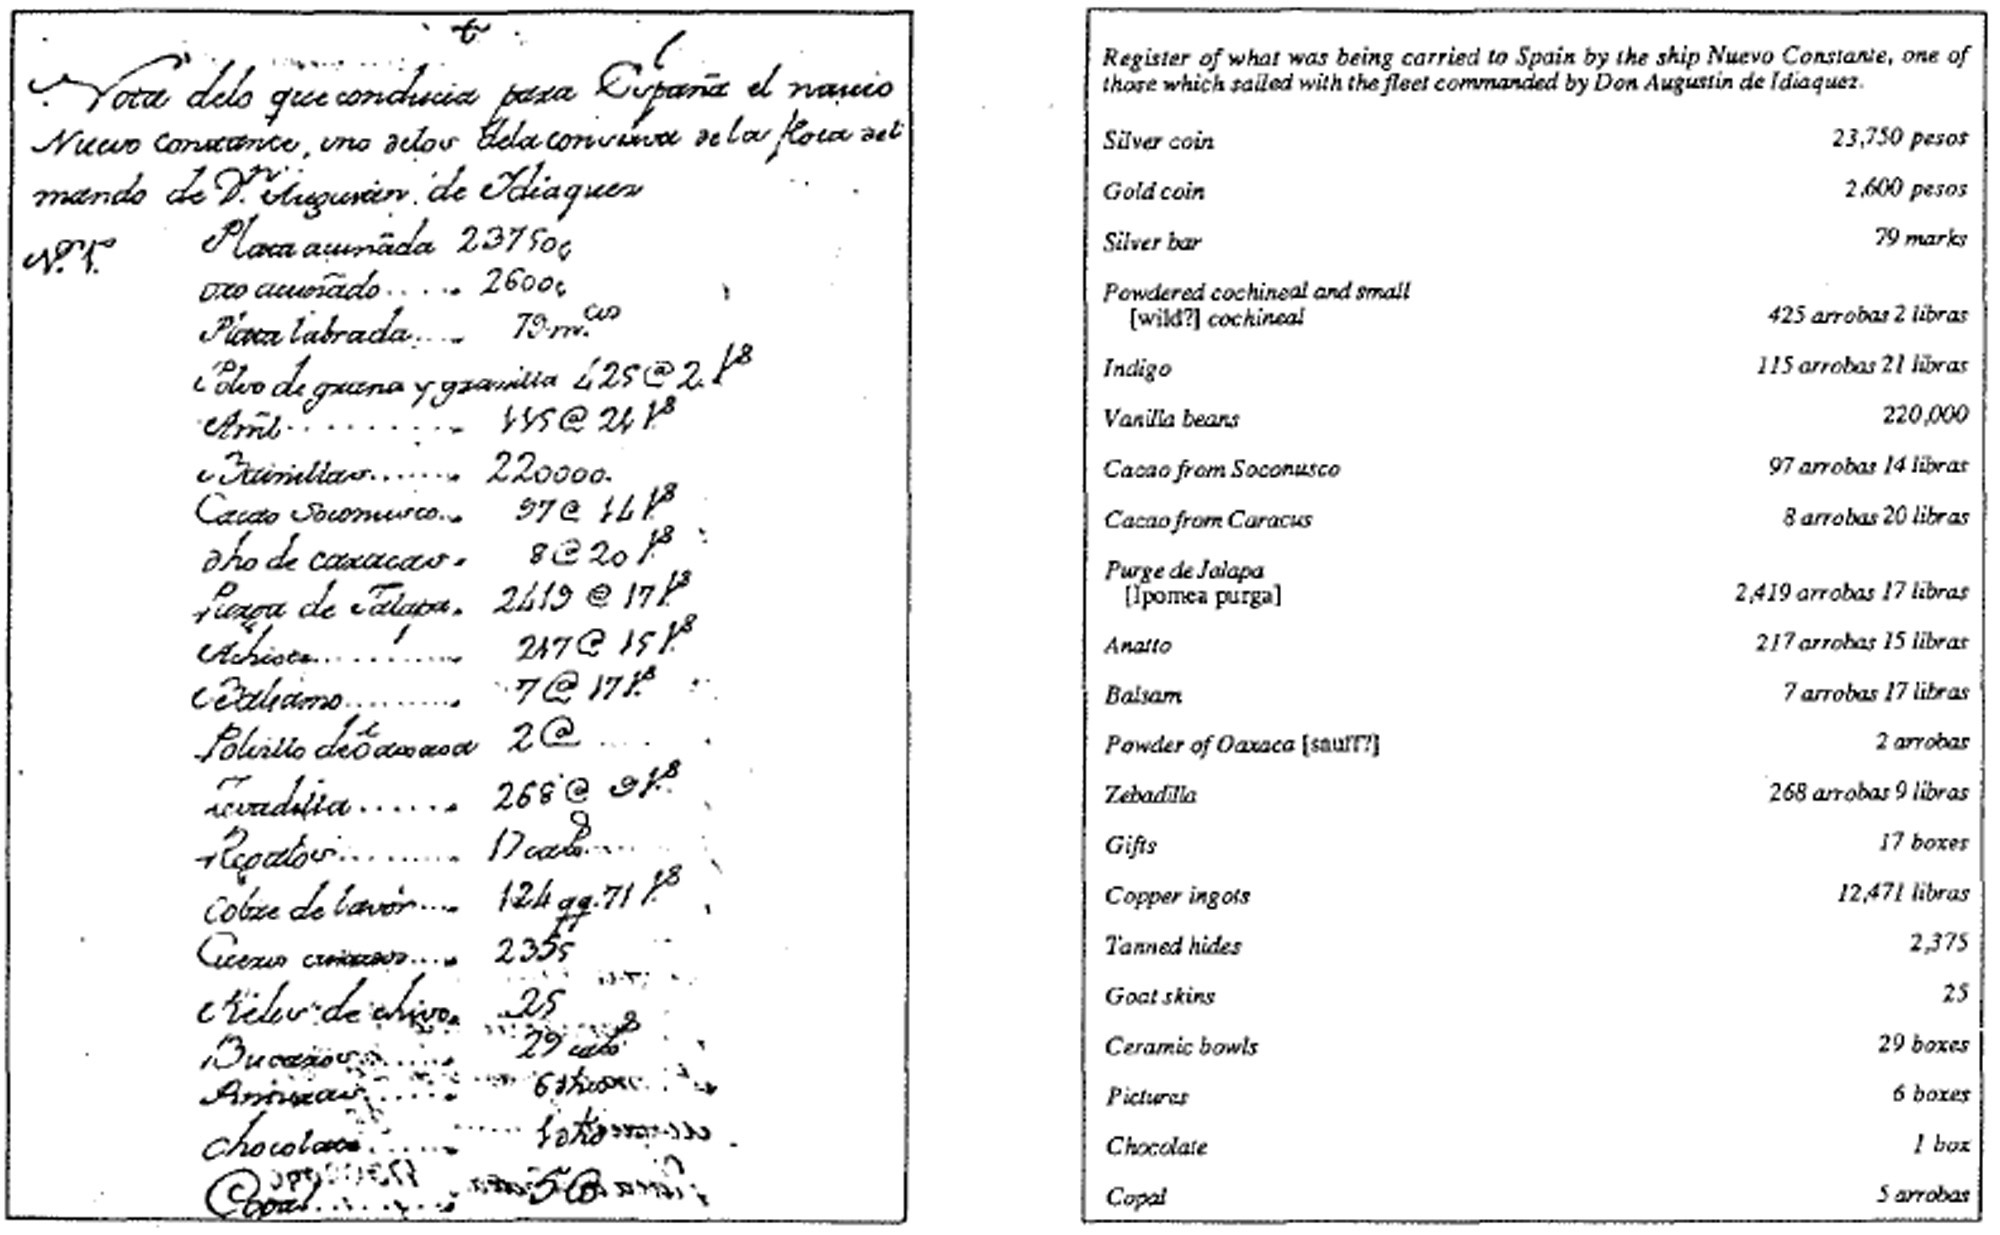 Nota delo que conducia para España el navio
Nuevo Constante, uno delos dela conserva de la flota del
mando de Dn. Augustin de Idiaquez
N. 1.
Plata acuñada 23750
oro acuñado..... 2600
Plata labrada.... 79 m.cos
Polvo de grana y granilla 425 @ 2 lb
Añil 115 @ 21 lb
Bainillas...... 220000.
Cacao Soconusco.. 97 @ 14 lb
dho de caracas. 8 @ 20 lb
Purga de Jalapa. 2419 @ 17 lb
Achiote.......... 217 @ 15 lb
Balsamo......... 7 @ 17 lb
Polvillo de 2 @
Zevadilla...... 268 @ 9 lb
Regalos........ 17
cobre de lavor.... 124 qq. 71 lb
Cueros 23
Pieles de chivo. 25
Bucaros 29
6
chocolate 1
Copal 5 @
Register of what was being carried to Spain by the ship Nuevo Constante, one of
those which sailed with the fleet commanded by Don Augustin de Idiaquez.
Silver coin 23,750 pesos
Gold coin 2,600 pesos
Silver bar 79 marks
Powdered cochineal and small
[wild?] cochineal 425 arrobas 2 libras
Indigo 115 arrobas 21 libras
Vanilla beans 220,000
Cacao from Soconusco 97 arrobas 14 libras
Cacao from Caracus 8 arrobas 20 libras
Purge de Jalapa
[Ipomea purga] 2,419 arrobas 17 libras
Anatto 217 arrobas 15 libras
Balsam 7 arrobas 17 libras
Powder of Oaxaca [snuff?] 2 arrobas
Zebadilla 268 arrobas 9 libras
Gifts 17 boxes
Copper ingots 12,471 libras
Tanned hides 2,375
Goat skins 25
Ceramic bowls 29 boxes
Pictures 6 boxes
Chocolate 1 box
Copal 5 arrobas